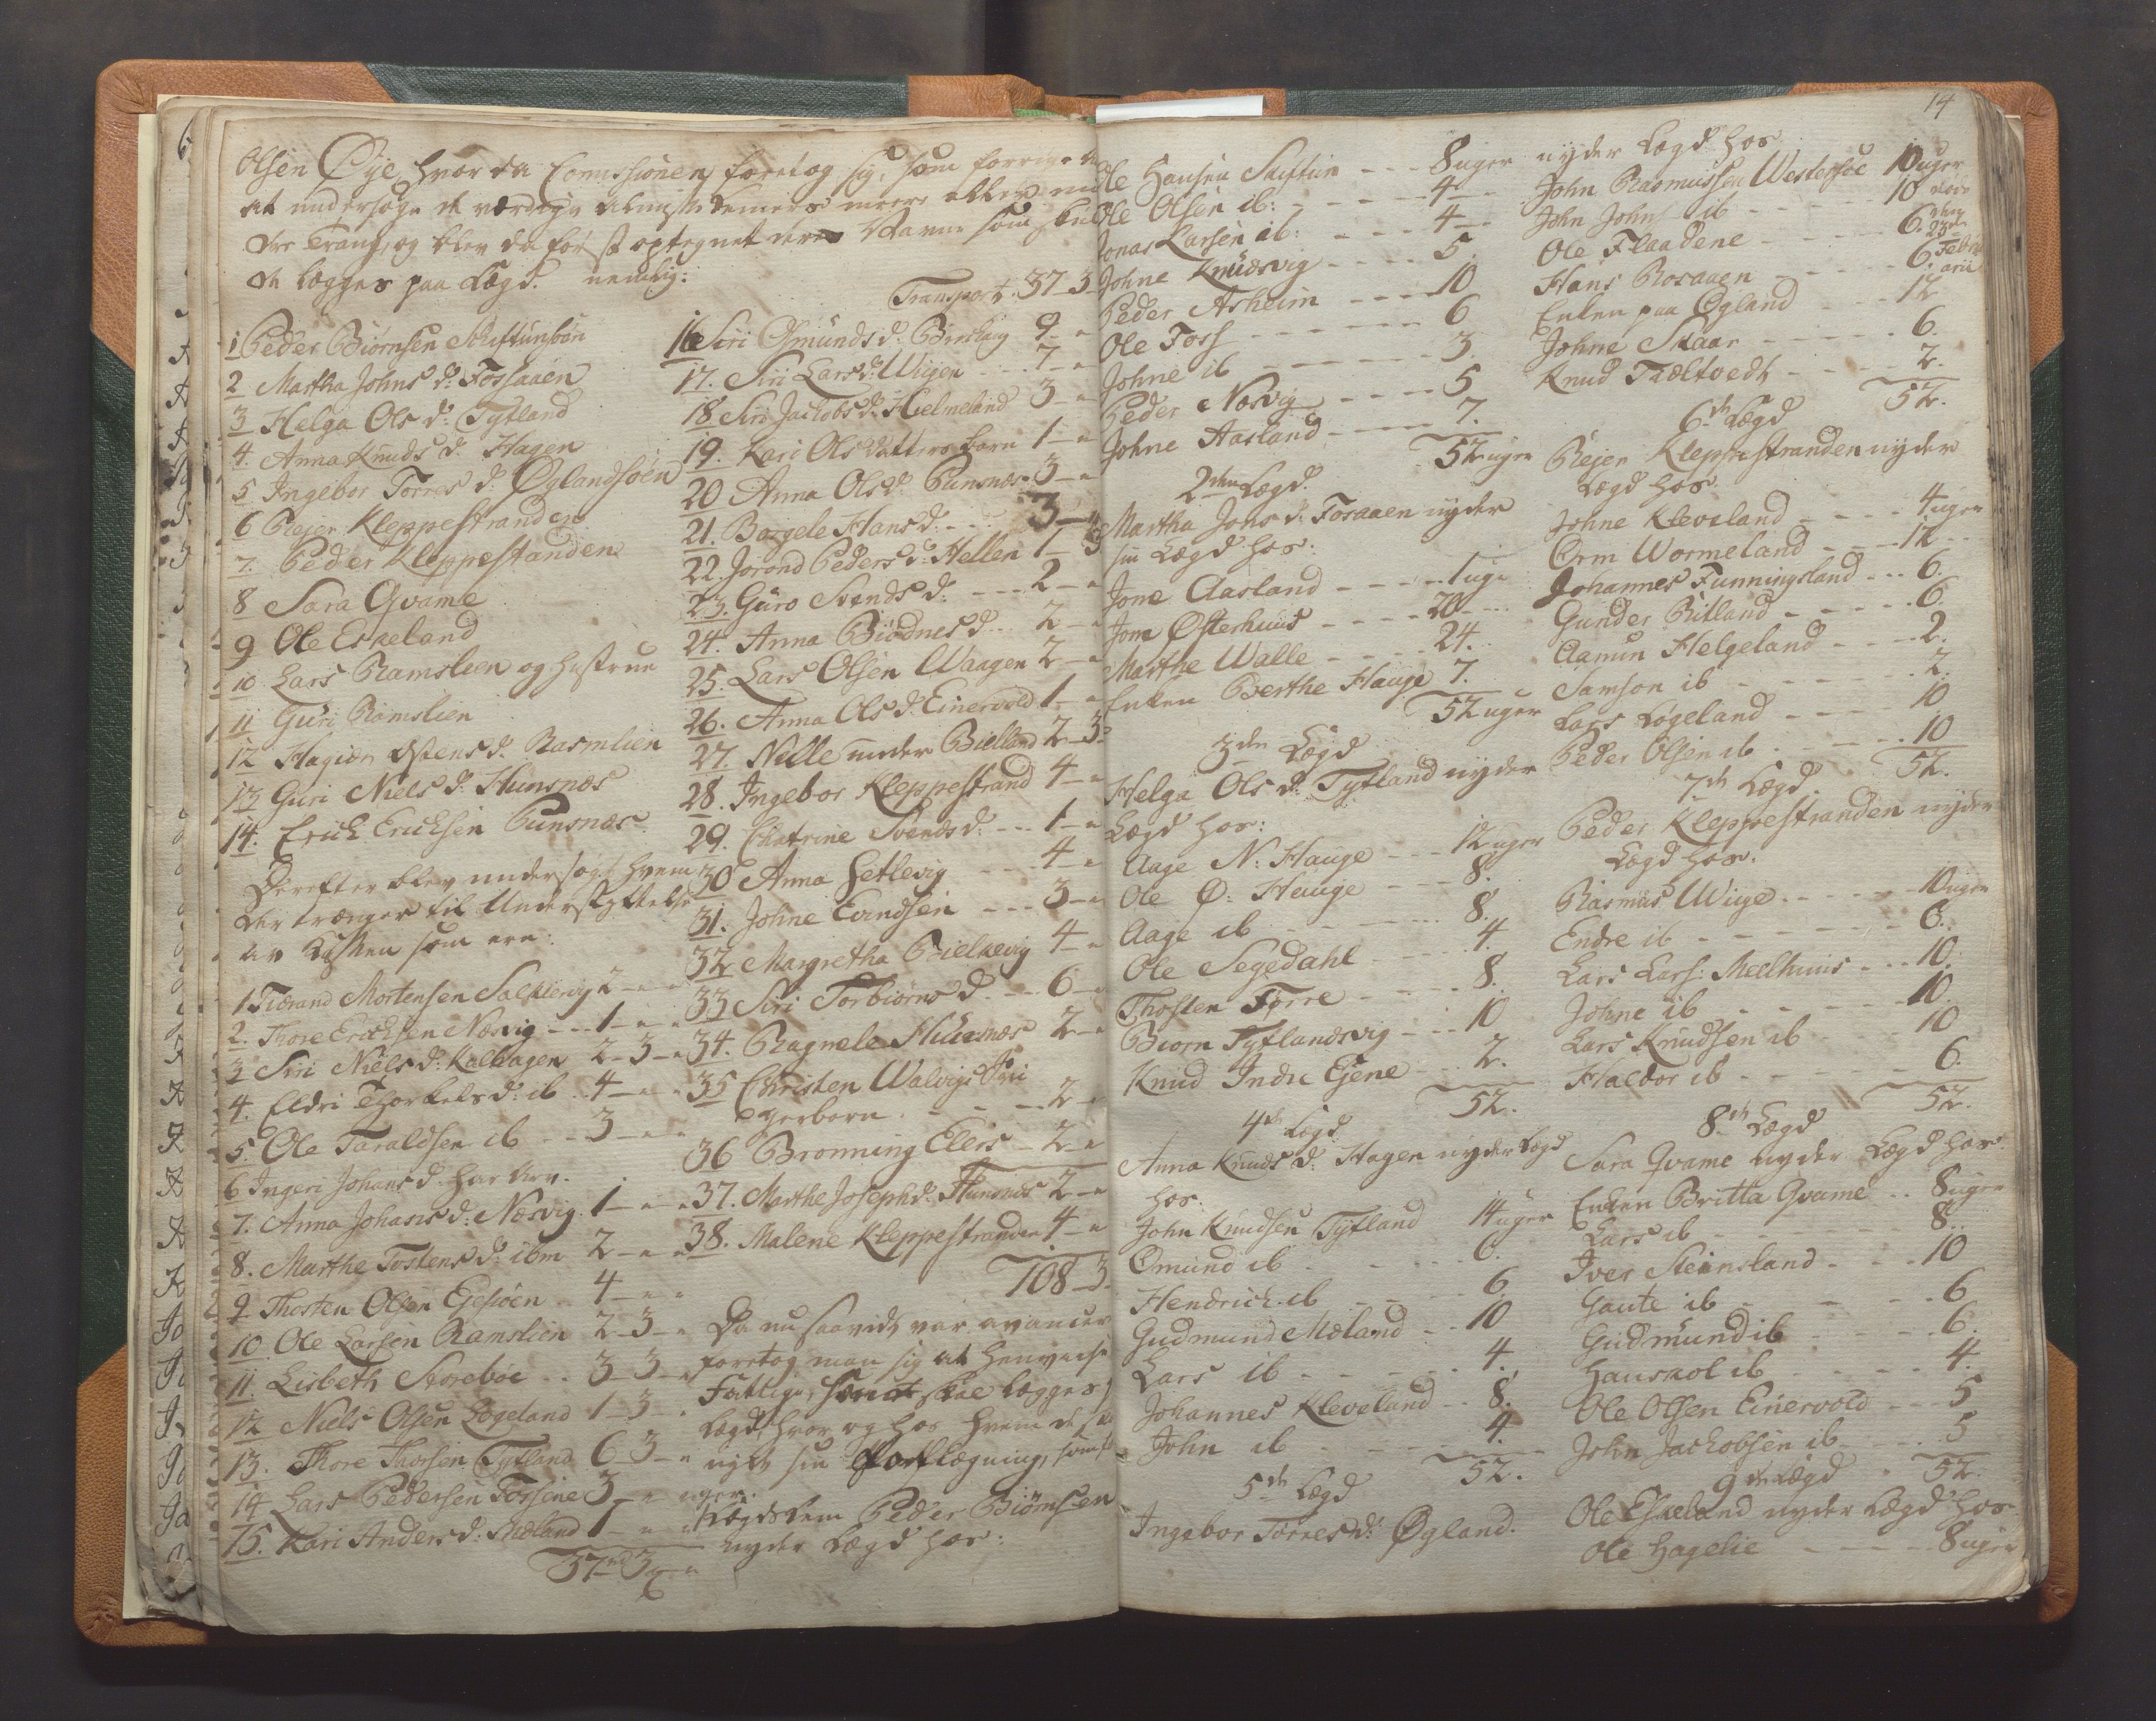 Olsen Øÿe, hvor da Comissionen foretog sig, som forrige
at undersøge de værdige almisselemers meere eller min
dre Trang, og blev da først optegnet dere Navne som
de lægges paa Lægd. nemlig:
1 Peder Biørnsen Skiftunsøen
2 Martha Johns d: Fossaaen
3 Helga Ols d: Tytland
4. Anna Knuds d: Hagen
5 Ingebor Torres d. Øglandsøen
6 Reier Kleppestranden
7. Peder Kleppestanden
8 Sara Qvame
9 Ole Eskeland
10 Lars Ramslien og hustrue
11 Guri Ramslien
12 Hagien Østens d. Rasmlien
13 Guri Niels d: Hunsnæs
14. Erich Ericksen Punsnæs.
Derefter blev undersøgt hvem
der trænger til Understyttelse
av Kassen som ere:
1 Tierand Mortensen Salklevig 2 - "
2. Thore Ericksen Næsvig --- 1 - " - "
3 Siri Niels d: Kalhagen 2 - 3 - "
4. Eldri Thorkels d: ib . 4 - " - "
5. Ole Taraldsen ib -- 3 - " - "
6 Ingeri Johans d. har Arv.
7. Anna Johans d: Næsvig. 1 - " - "
8. Marthe Tostens d: ibm 2 - " - "
9 Thosten Olsen Ejesiøen .. 4 - " - "
10. Ole Larsen Ramslien 2 - 3 - "
11. Lisbeth Storebøe .. 3 - 3 - "
12 Niels Olsen Løgeland 1 - 3 - "
13. Thore Thorsen Tytland 6 - 3 - "
14 Lars Pedersen Fossene 3 - " - "
15. Kari Anders d: Mæland 1 - " - "
37 - 3 - "
Transport. 37 - 3 -
16 Siri Osmunds d: 9 - "
17. Siri Lars d: Wigen --- 7 - "
18 Siri Jachobs d: Hielmeland 3 - "
19. Kari Ols datters barn 1 - "
20 Anna Ols d: Punsnæs 3 - "
21. Borgele Hans d: --- 3 - "
22. Jorond Peders d: Hellen 1 - 3
23. Guro Svends d: --- 2 - "
24. Anna Biødnes d. -- 2 - "
25. Lars Olsen Waagen 2 - "
26. Anna Ols d: Einervold 1 - "
27. Nille under Bielland 2 - 3
28. Ingebor Kleppestrand 4 - "
29. Chatrine Svends d: --- 1 - "
30 Anna Hetlevig --- 4 - "
31. Johne Evindsen --- 3 - "
32 Margretha Bielkevig 4 - "
33 Siri Torbiørns d. --- 6 - "
34. Ragnele Hunsnæs 2 - "
35 Christen Walvigs
barn . - - - 2 - "
36 Bronning Elers - 2 - "
37. Marthe Josephd: Hunsnæs 2 - "
38. Malene Kleppestranden 4 - "
108 - 3
Da nu saavidt var avancer
foretog man sig at henviise
Fattige, som skal lægges
Lægd, hvor og hos hvem de
nyde sin Forflægning, som
Lægdslem Peder Biørnsen
nyder Lægd hos:
14
Ole Hansen Skiftun --- 8 uger
Ole Olsen ib: ------ 4 --
Jonas Larsen ib: ---- 4 --
Johne Knudsvig ---- 5.
Peder Asheim ---- 10
Ole Foss ------ 6
Johne ib ------ 3.
Peder Næsvig ---- 5
Johne Aasland ---- 7.
52 uger
2den Lægd.
Martha Jons d: Fosaaen nyder
sin Lægd hos:
Jone Aasland ---- 1 uge
Jone Østerhuus ---- 20 --
Marthe Walle ---- 24.
Enken Berthe Hauge 7.
52 uger
3de Lægd
Helga Ols d: Tytland nyder
Lægd hos:
Aage N: Hauge --- 12 uger
Ole Ø: Hauge --- 8.
Aage ib ------ 8.
Ole Segedahl ---- 4.
Thosten Førre ---- 8.
Biorn Tytlandsvig --- 10
Knud Indre Ejene -- 2.
52.
4de Lægd
Anna Knuds d: Hagen nyder Lægd
hos.
John Knudsen Tytland 14 uger
Omund ib - - - - 6.
Hendrich ib ---- 6.
Gudmund Mæland -- 10
Lars ib ----- 4.
Johannes Kleveland -- 8.
John ib - - - - 4
52.
5de Lægd
Ingebor Torres d: Øgland.
nyder Lægd hos
John Rasmussen Westersøe 10 uger
John Johns ib ---- 10
Ole Flaadene ----- 6.
Hans Rosaaen ---- 6.
Enken paa Øgland -- 12
Johne Skaar ----- 6.
Knud Tvæltvedt ---- 2.
52.
den 23de Febru arii
6de Lægd
Reier Kleppestranden nyder
Lægd hos.
Johne Kleveland --- 4 uger
Orm Wormeland --- 12 --
Johannes Funningsland --- 6.
Gunder Ritland ---- 6.
Aamun Helgeland -- 2.
Samson ib ----- 2.
Lars Løgeland --- 10
Peder Olsen ib ---- 10
52.
7de Lægd.
Peder Kleppestranden nyder
Lægd hos:
Rasmus Wiige ---- 10 uger
Endre ib ------ 6.
Lars Lars: Meelhuus --- 10.
Johne ib ----- 10.
Lars Knudsen ib -- 10
Haldor ib ----- 6.
52.
8de Lægd
Sara Qvame nyder Lægd hos
Enken Britta Qvame .. 8 uger
Lars ib ----- 8.
Iver Steinsland --- 10
Gaute ib ---- 6
Gudmund ib ---- 6.
Hauskol ib ---- 4.
Ole Olsen Einervold --- 5
John Jachobsen ib --- 5
9de Lægd 52.
Ole Eskeland nyder Lægd hos
Ole Hagelie ----- 8 uger